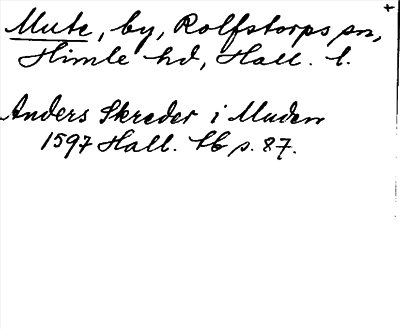 Mute, by, Rolfstorps sn,
Himle hd, Hall. l.
Anders Skreder i Muden
1597 Hall. Hb s. 87.